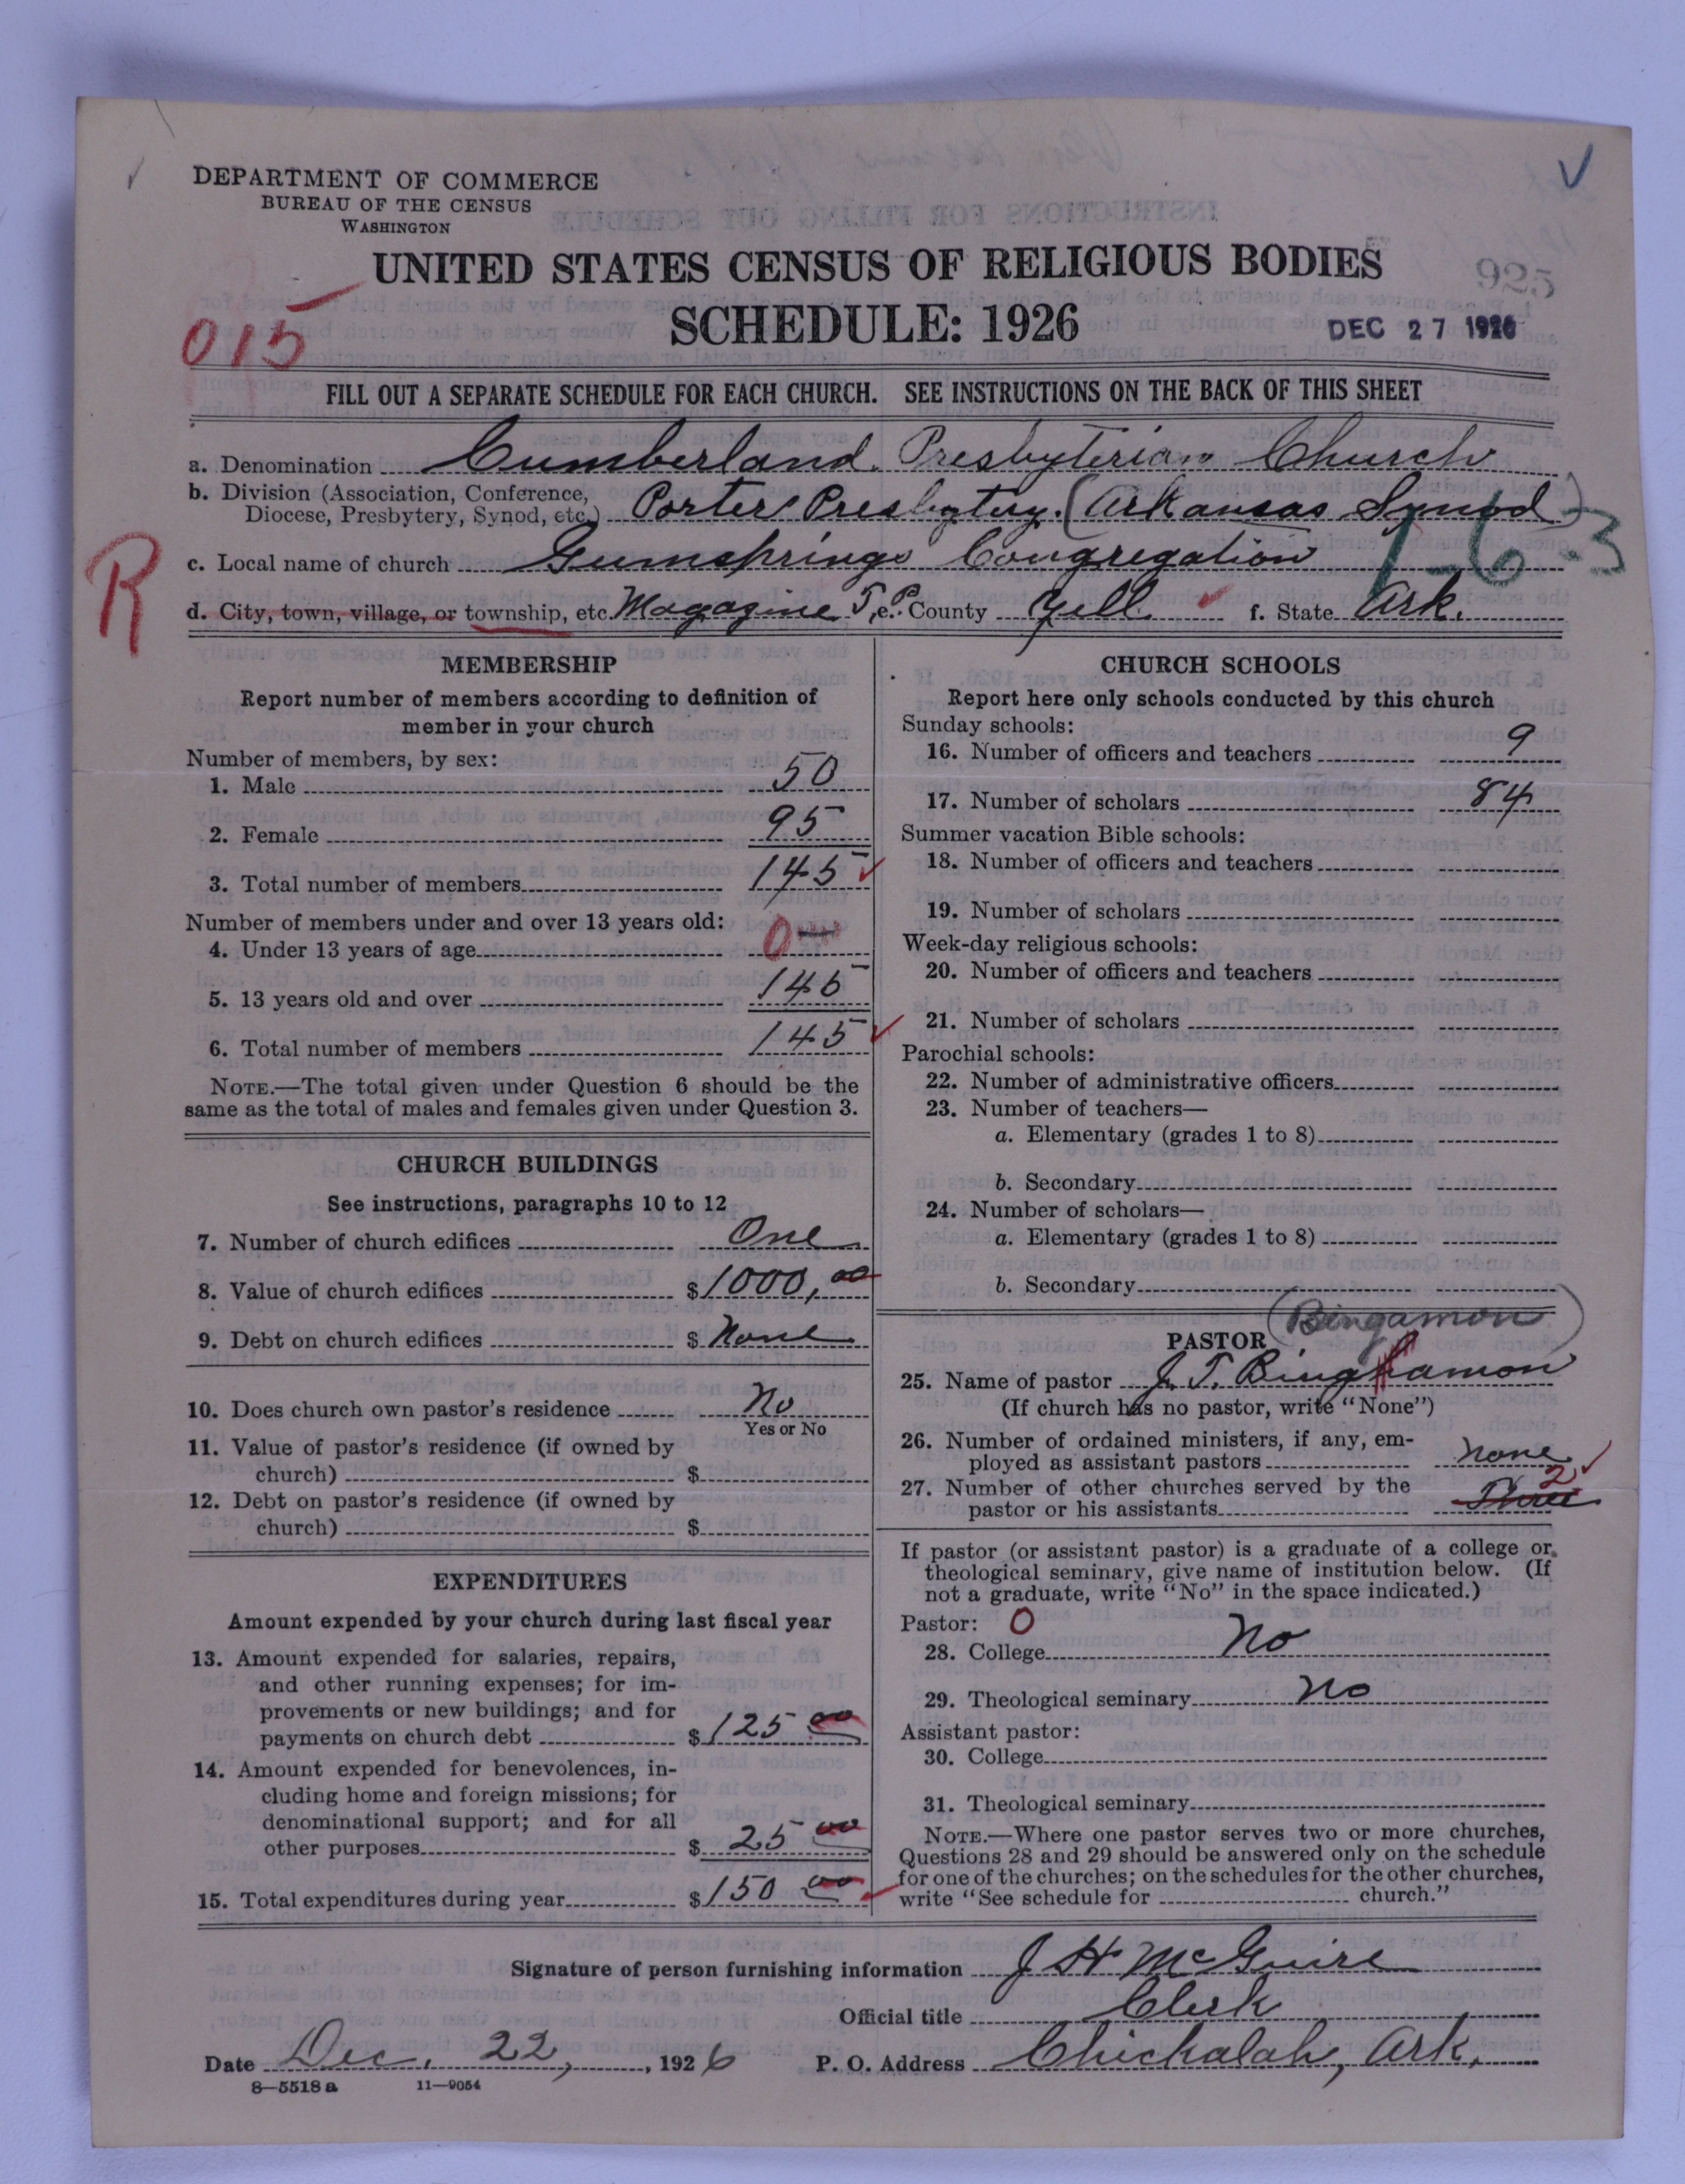 DEPARTMENT OF COMMERCE
BUREAU OF THE CENSUS
WASHINGTON
UNITED STATES CENSUS OF RELIGIOUS BODIES
SCHEDULE: 1926
925
DEC 27 1926
015
FILL OUT A SEPARATE SCHEDULE FOR EACH CHURCH. SEE INSTRUCTIONS ON THE BACK OF THIS SHEET
a. Denomination Cumberland Presbyterian Church
b. Division (Association, Conference,
Diocese, Presbytery, Synod, etc.) Porter Presbytery. (Arkansas Synod)
1-6-3
R
c. Local name of church Gumsprings Congregation
d. City, town, village, or township, etc. Magazine T.P. e. County Yell f. State Ark.
MEMBERSHIP
Report number of members according to definition of
member in your church
Number of members, by sex:
1. Male 50
2. Female 95
3. Total number of members 145
Number of members under and over 13 years old:
4. Under 13 years of age 0
5. 13 years old and over 145
6. Total number of members 145
NOTE.—The total given under Question 6 should be the
same as the total of males and females given under Question 3.
CHURCH BUILDINGS
See instructions, paragraphs 10 to 12
7. Number of church edifices One
8. Value of church edifices $1000,00
9. Debt on church edifices $ None
10. Does church own pastor's residence No
Yes or No
11. Value of pastor's residence (if owned by
church) $
12. Debt on pastor's residence (if owned by
church) $
EXPENDITURES
Amount expended by your church during last fiscal year
13. Amount expended for salaries, repairs,
and other running expenses; for im-
provements or new buildings; and for
payments on church debt $125 00
14. Amount expended for benevolences, in-
cluding home and foreign missions; for
denominational support; and for all
other purposes $ 25 00
15. Total expenditures during year $150 00
CHURCH SCHOOLS
Report here only schools conducted by this church
Sunday schools:
16. Number of officers and teachers 9
17. Number of scholars 84
Summer vacation Bible schools:
18. Number of officers and teachers
19. Number of scholars
Week-day religious schools:
20. Number of officers and teachers
21. Number of scholars
Parochial schools:
22. Number of administrative officers
23. Number of teachers—
a. Elementary (grades 1 to 8)
b. Secondary
24. Number of scholars—
a. Elementary (grades 1 to 8)
b. Secondary
PASTOR (Bingamon)
25. Name of pastor J. T. Binghamon
(If church has no pastor, write "None")
26. Number of ordained ministers, if any, em-
ployed as assistant pastors none
27. Number of other churches served by the 2
pastor or his assistants Three
If pastor (or assistant pastor) is a graduate of a college or
theological seminary, give name of institution below. (If
not a graduate, write "No" in the space indicated.)
Pastor: 0
28. College No
29. Theological seminary No
Assistant pastor:
30. College
31. Theological seminary
NOTE.—Where one pastor serves two or more churches,
Questions 28 and 29 should be answered only on the schedule
for one of the churches; on the schedules for the other churches,
write "See schedule for church."
Signature of person furnishing information J H McGuire
Official title Clerk
Date Dec. 22, 1926 P. O. Address Chickalah, Ark.
8—5518 a 11—9054